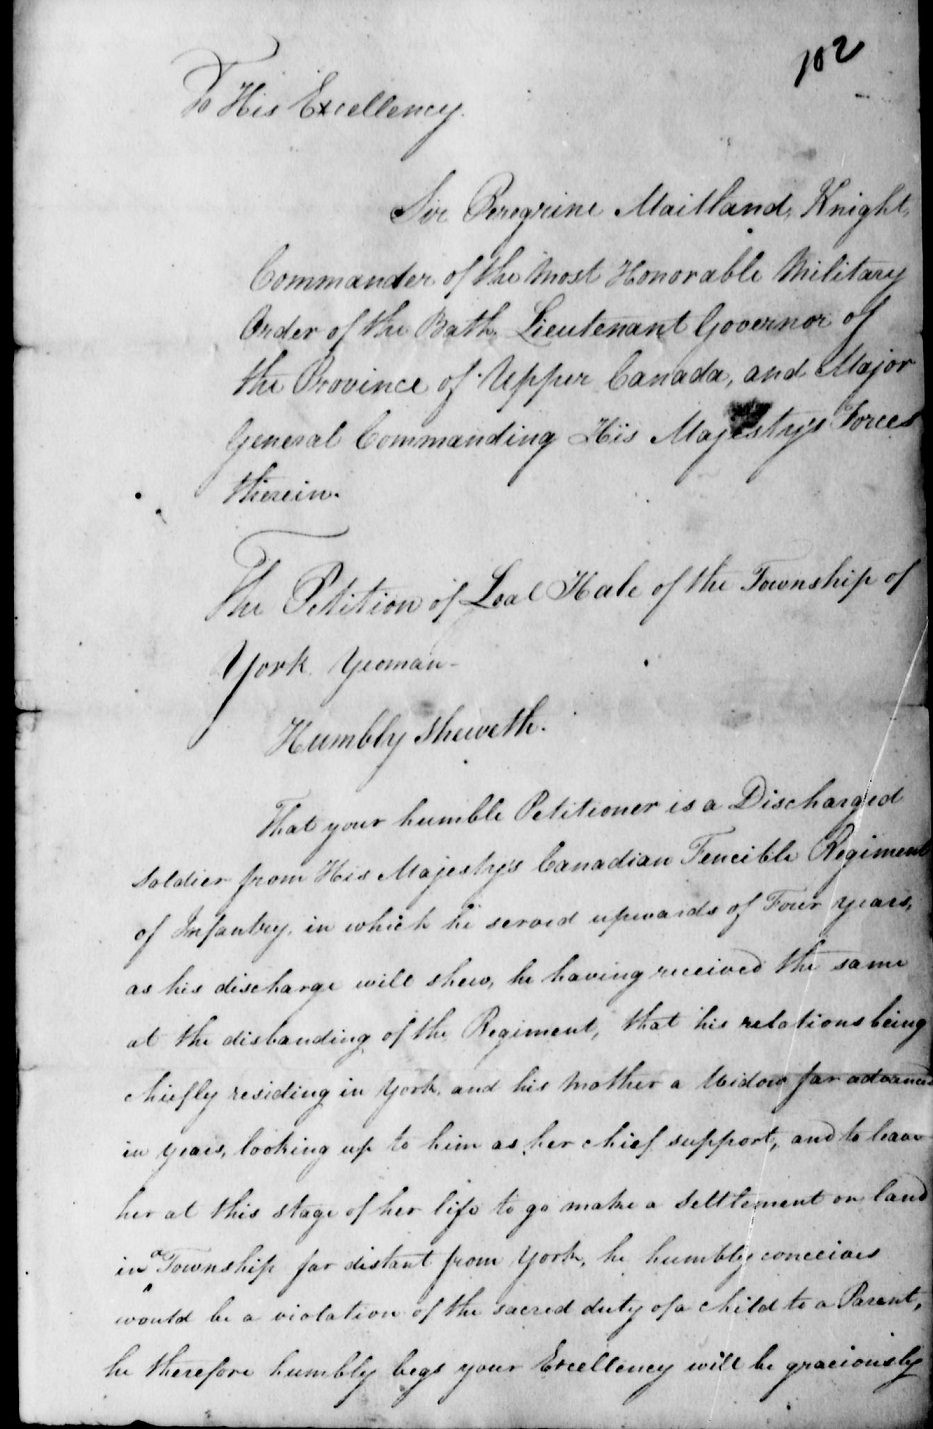 102
To His Excellency.
Sir Peregrine Maitland, Knight,
Commander of the Most Honorable Military
Order of the Bath. Lieutenant Governor of
the Province of Upper Canada, and Major
General Commanding His Majesty's Forces
therein.
The Petition of Loal Hale of the Township of
York Yeoman -
Humbly Sheweth.
That your humble Petitioner is a Discharged
Soldier from His Majesty's Canadian Fencible Regiment
of Infantry, in which he served upwards of Four years,
as his discharge will shew, he having received the same
at the disbanding of the Regiment, that his relations being
chiefly residing in York, and his Mother a Widow far advanced
in years, looking up to him as her chief support, and to leave
her at this stage of her life to go make a Settlement on land
in a Township far distant from York, he humbly conceives
would be a violation of the sacred duty of a child to a Parent,
he therefore humbly begs your Excellency will be graciously